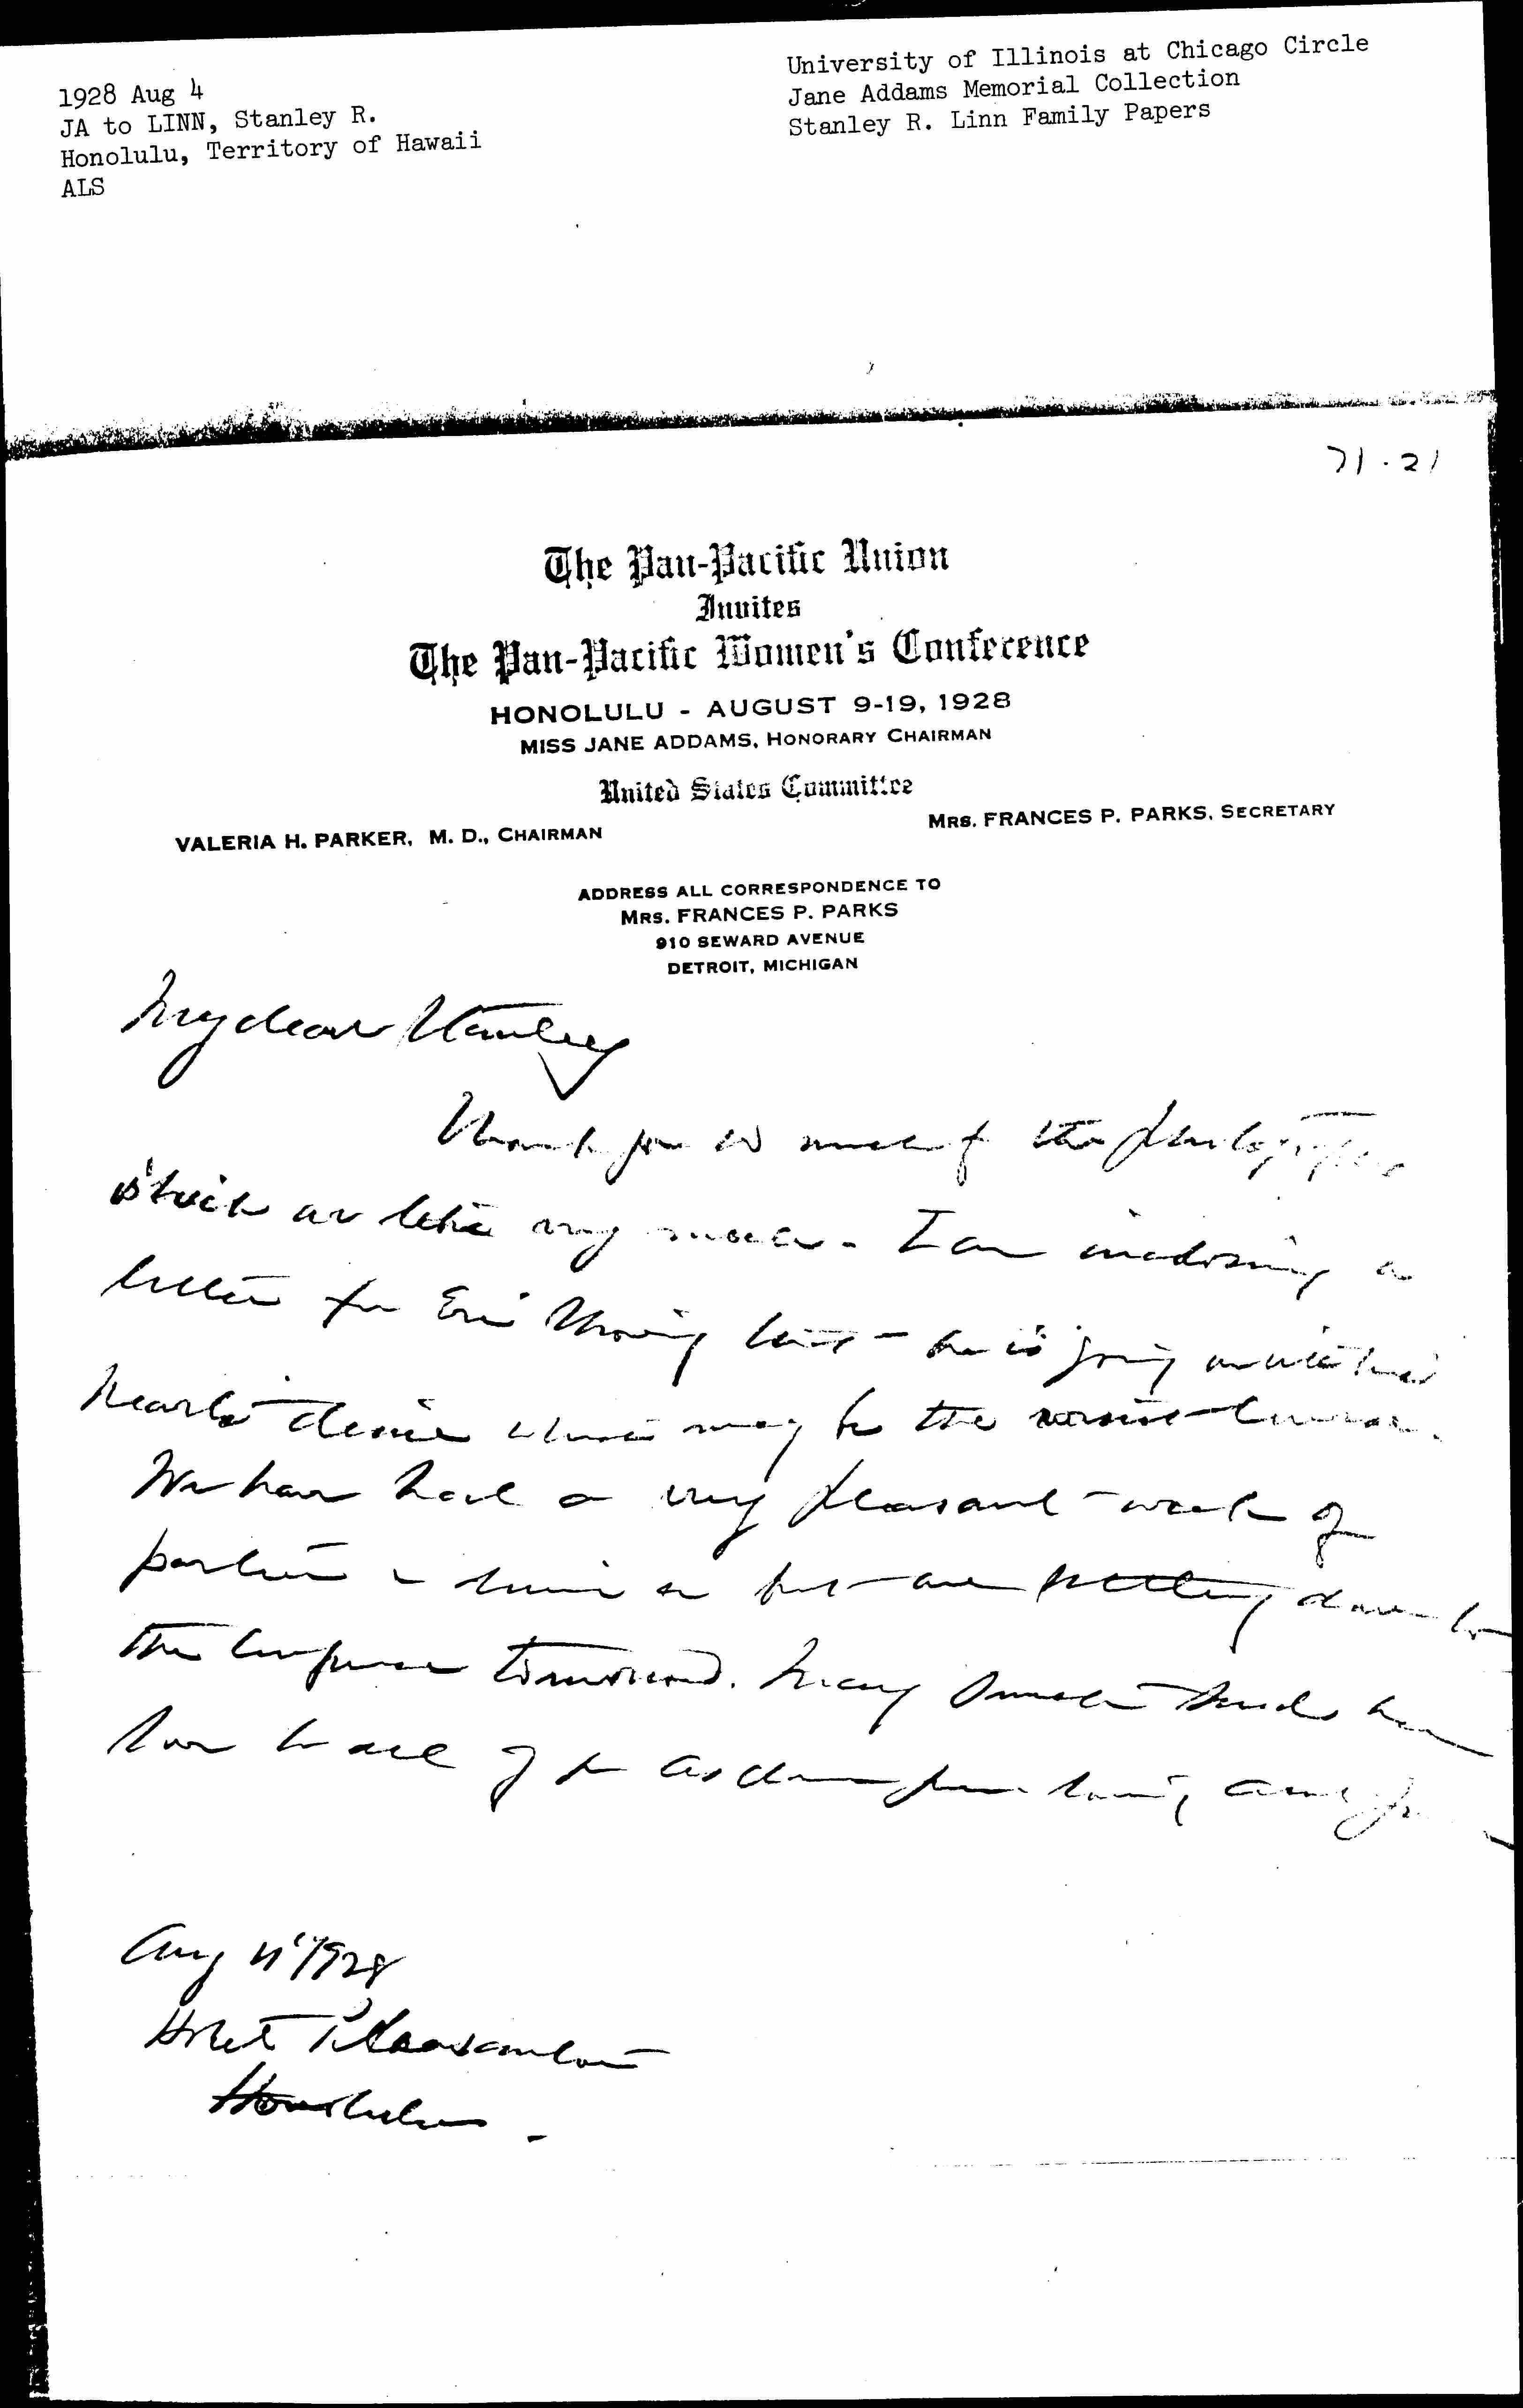 1928 Aug 4
JA to LINN, Stanley R.
Honolulu, Territory of Hawaii
ALS
University of Illinois at Chicago Circle
Jane Addams Memorial Collection
Stanley R. Linn Family Papers
71.21
The Pan-Pacific Union
Invites
The Pan-Pacific Women's Conference
HONOLULU - AUGUST 9-19, 1928
MISS JANE ADDAMS, HONORARY CHAIRMAN
United States Committee
VALERIA H. PARKER, M. D., CHAIRMAN
MRS. FRANCES P. PARKS, SECRETARY
ADDRESS ALL CORRESPONDENCE TO
MRS. FRANCES P. PARKS
910 SEWARD AVENUE
DETROIT, MICHIGAN
My dear Stanley
Thank you so much for the photographs
which we like very much. I am inclosing a
letter for he is going
heart's desire may be the
We have had a very pleasant week of
parties but are settling down to
the conference tomorrow. Many
love to all of you
Aug 1928
Hotel Pleasanton
Honolulu -